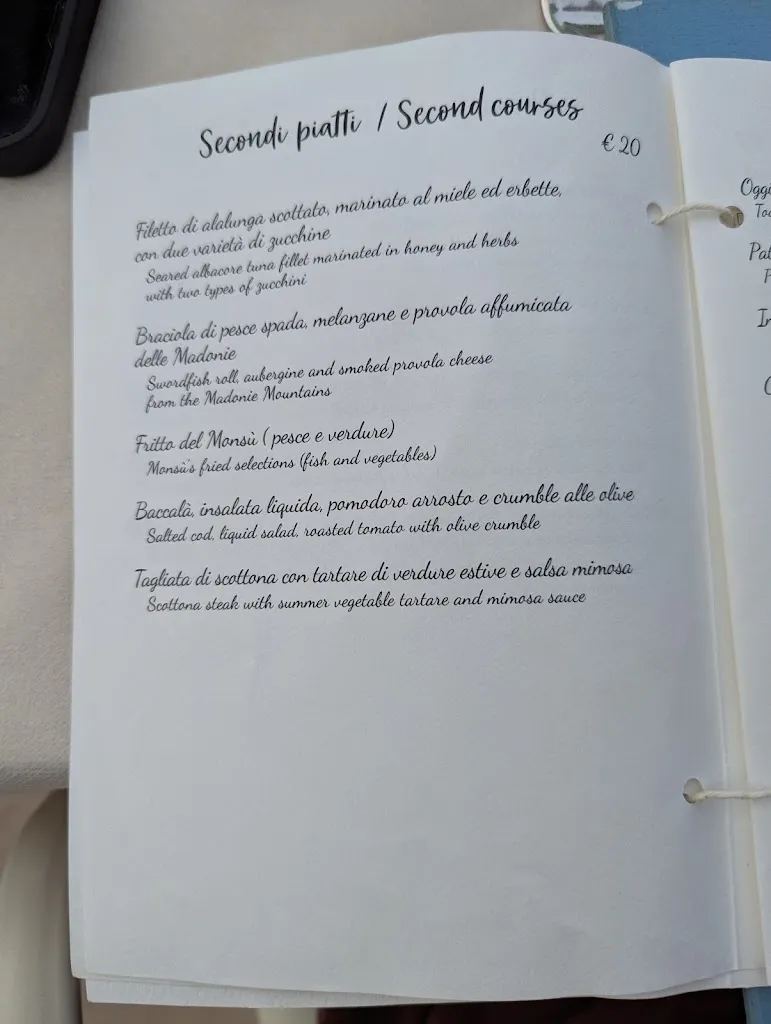 Secondi piatti / Second courses
€ 20
Filetto di alalunga scottato, marinato al miele ed erbette,
con due varietà di zucchine
Seared albacore tuna fillet marinated in honey and herbs
with two types of zucchini
Braciola di pesce spada, melanzane e provola affumicata
delle Madonie
Swordfish roll, aubergine and smoked provola cheese
from the Madonie Mountains
Fritto del Monsù ( pesce e verdure)
Monsù's fried selections (fish and vegetables)
Baccalà, insalata liquida, pomodoro arrosto e crumble alle olive
Salted cod, liquid salad, roasted tomato with olive crumble
Tagliata di scottona con tartare di verdure estive e salsa mimosa
Scottona steak with summer vegetable tartare and mimosa sauce